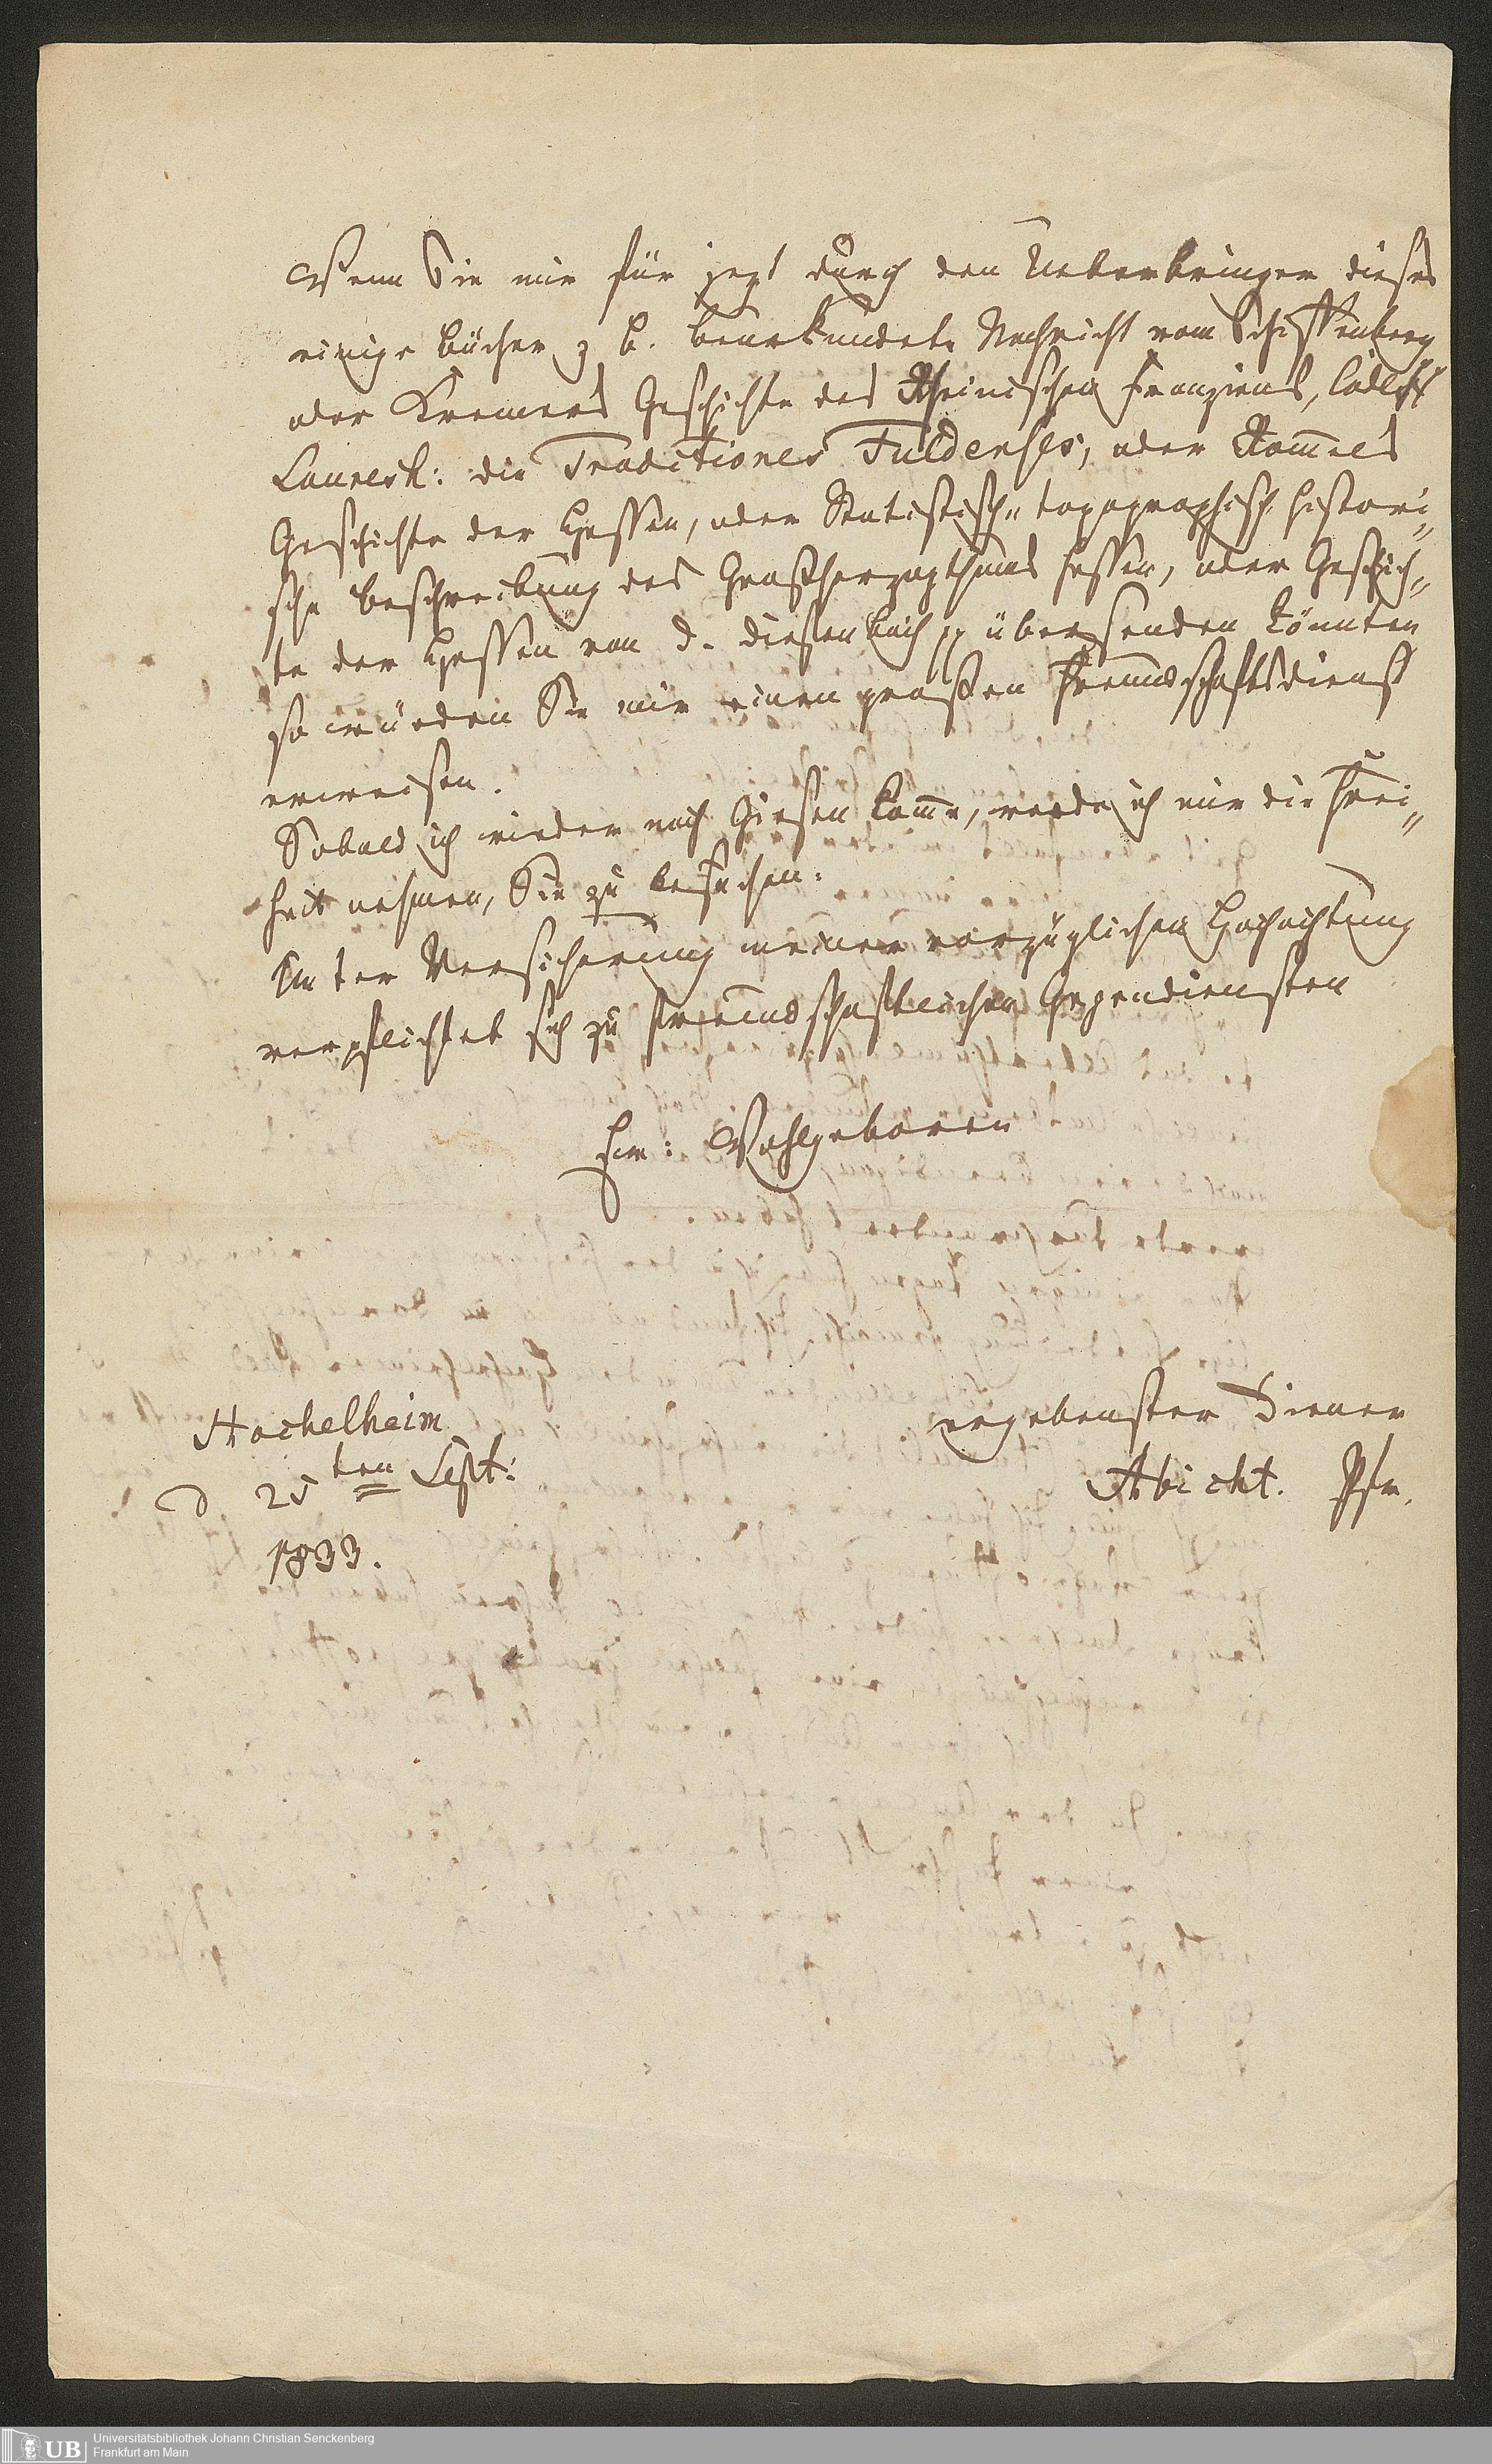 Wenn Sie mir für jezt durch den Ueberbringer dieses
einige Bücher z B. beurkundete Nachricht vom Schiffenberg
oder Kremers Geschichte des Rheinischen Franziens, Codex
Lauresh: die Traditiones Fuldenses, oder Rom̅els
Geschichte der Hessen, oder Statistisch-topographisch histori„
sche Beschreibung des Großherzogthums Hessen, oder Geschich„
te der Hessen von D. Dieffenbach pp übersenden könnten
so würden Sie mir einen großen Freundschaftsdienst
erweisen.
Sobald ich wieder nach Giesen kom̅e, werde ich mir die Frei„
heit nehmen, Sie zu besuchen.
Unter Versicherung meiner vorzüglichen Hochachtung
verpflichtet sich zu freundschaftlichen Gegendiensten
Ew: Wohlgeboren
ergebenster Diener
Abicht. Pfr.
Hochelheim
d 25ten Sept:
1833.
UB Universitätsbibliothek Johann Christian Senckenberg
Frankfurt am Main